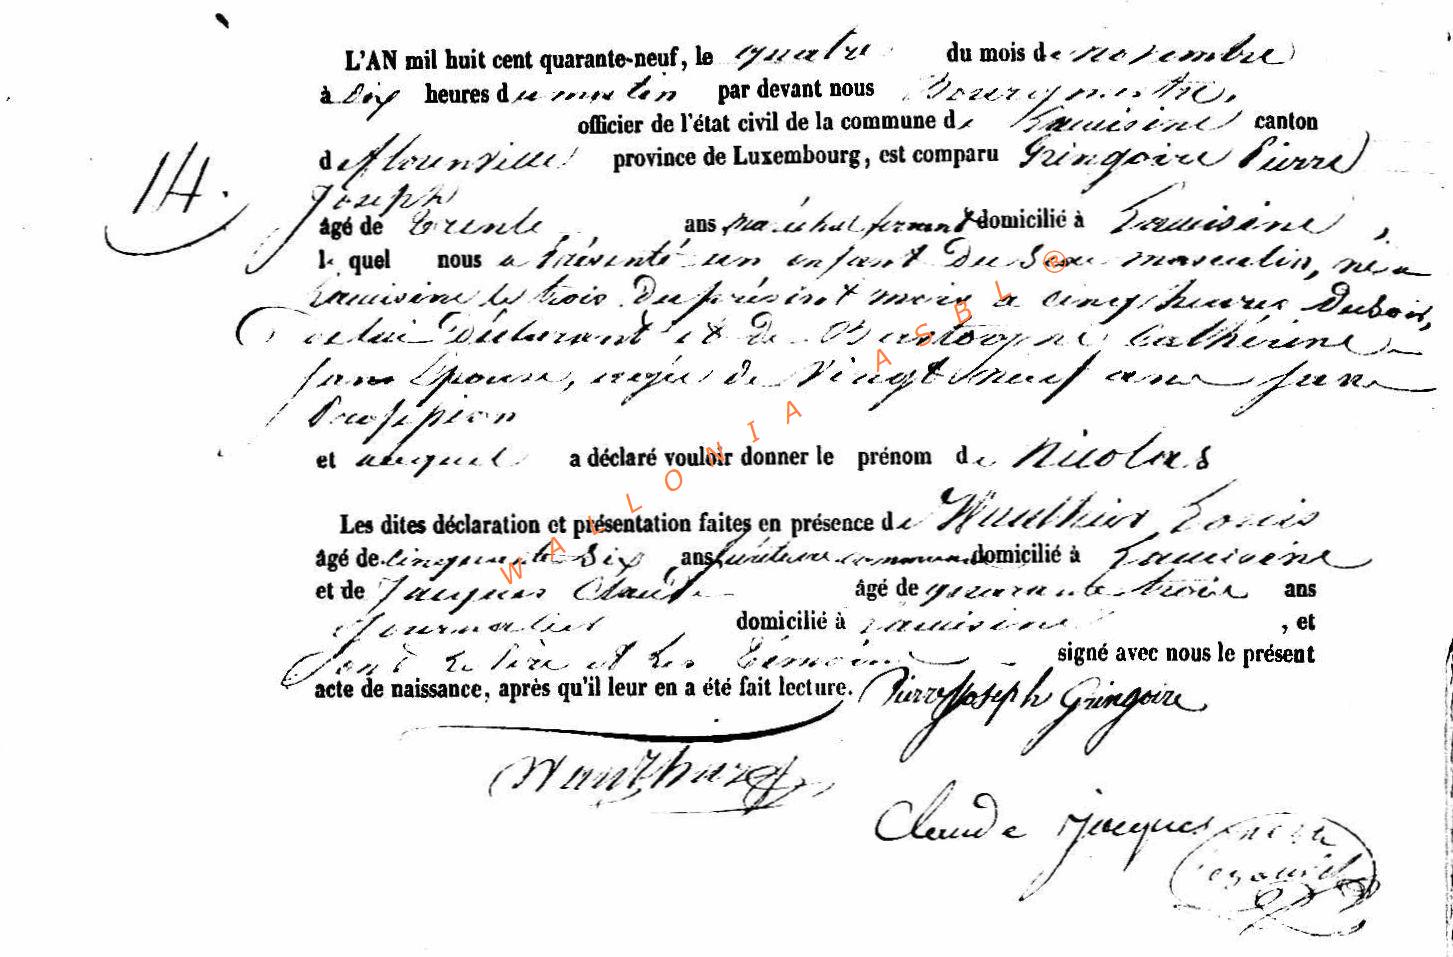 L'AN mil huit cent quarante-neuf, le quatre du mois de novembre
à dix heures du matin par devant nous Bourgmestre,
officier de l'état civil de la commune de Lacuisine canton
de florenville province de Luxembourg, est comparu Gringoire Pierre
Joseph
14.
âgé de trente ans maréchal ferrant domicilié à Lacuisine,
le quel nous a présenté un enfant du sexe masculin, né a
Lacuisine le trois du présent mois a cinq heures du soir,
de lui Déclarant et de Catherine
son Epouse, agée de vingt neuf ans sans
Proffession
et auquel a déclaré vouloir donner le prénom de Nicolas
Les dites déclaration et présentation faites en présence de Wauthier Louis
âgé de cinquante six ans domicilié à Lacuisine
et de Jacques Claude âgé de quarante trois ans
Journalier domicilié à Lacuisine, et
ont le Père et les témoins signé avec nous le présent
acte de naissance, après qu'il leur en a été fait lecture. Pierre Joseph Gringoire
Claude Jacques
WALLONIA ASBL ®